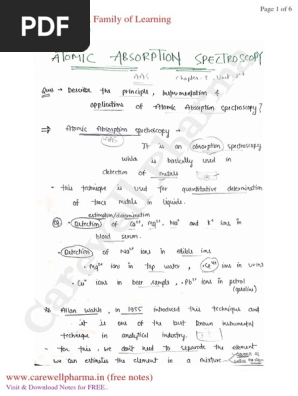 PDF
Family of Learning
Page 1 of 6
ATOMIC ABSORPTION SPECTROSCOPY
AAS Chapter-
Ques → Describe the principle, Instrumentation &
applications of Atomic Absorption spectroscopy?
⇒ Atomic Absorption spectroscopy →
AAS
It is an absorption spectroscopy
which is basically used in
detection of metals
- this technique is used for quantitative determination
of trace metals in liquids.
estimation/determination
eg - Detection of Ca²⁺, Mg²⁺, Na⁺ and K⁺ ions in
blood serum.
- Detection of Na⁺ ions in edible
- Mg²⁺ ions in tap water, ions in urine
- Cu⁺ ions in beer sample, Pb²⁺ ions in petrol
(gasoline)
Alan Walsh, in 1955 introduced this technique and
it is one of the best known instrumental
technique in analytical industry.
- for this, we don't need to separate the element
we can estimate the element in a mixture
Carewell Pharma
www.carewellpharma.in (free notes)
Visit & Download Notes for FREE..